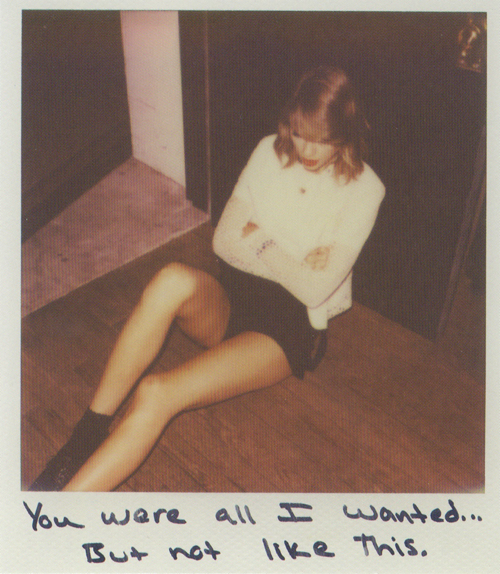 You were all I wanted...
But not like this.